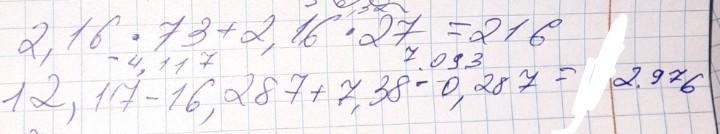 2,16 · 73 + 2,16 · 27 = 216
-4,117 7.093
12,17 - 16,287 + 7,38 - 0,287 = 2.976